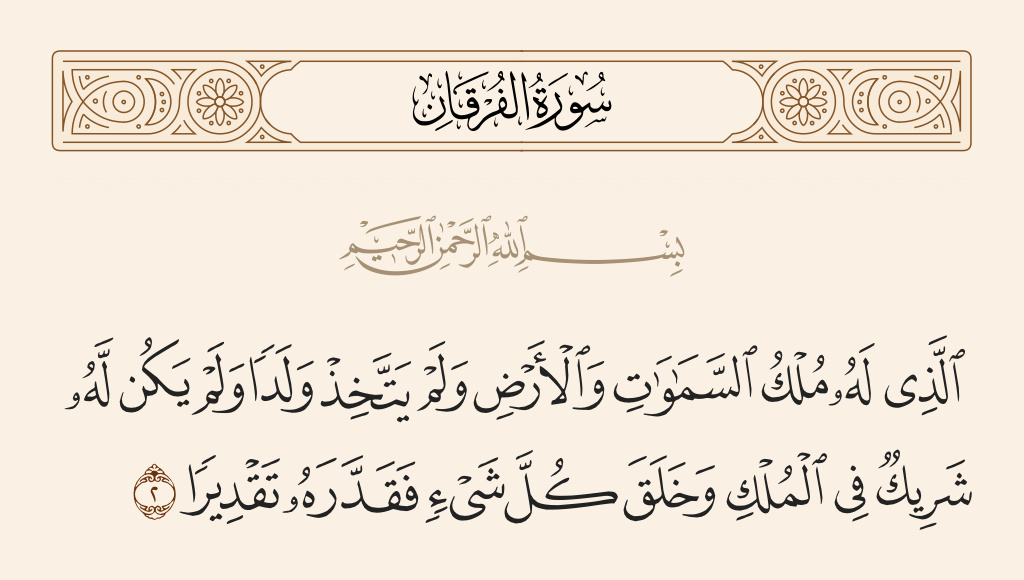 سُورَةُ الفُرْقَانِ
بِسْمِ ٱللَّهِ ٱلرَّحْمَٰنِ ٱلرَّحِيمِ
ٱلَّذِى لَهُۥ مُلْكُ ٱلسَّمَـٰوَٰتِ وَٱلْأَرْضِ وَلَمْ يَتَّخِذْ وَلَدًا وَلَمْ يَكُن لَّهُۥ
شَرِيكٌ فِى ٱلْمُلْكِ وَخَلَقَ كُلَّ شَىْءٍ فَقَدَّرَهُۥ تَقْدِيرًا ٢